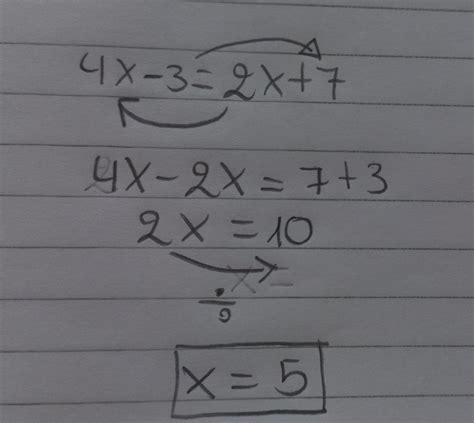 4x-3=2x+7
4x-2x=7+3
2x=10
÷
x=5